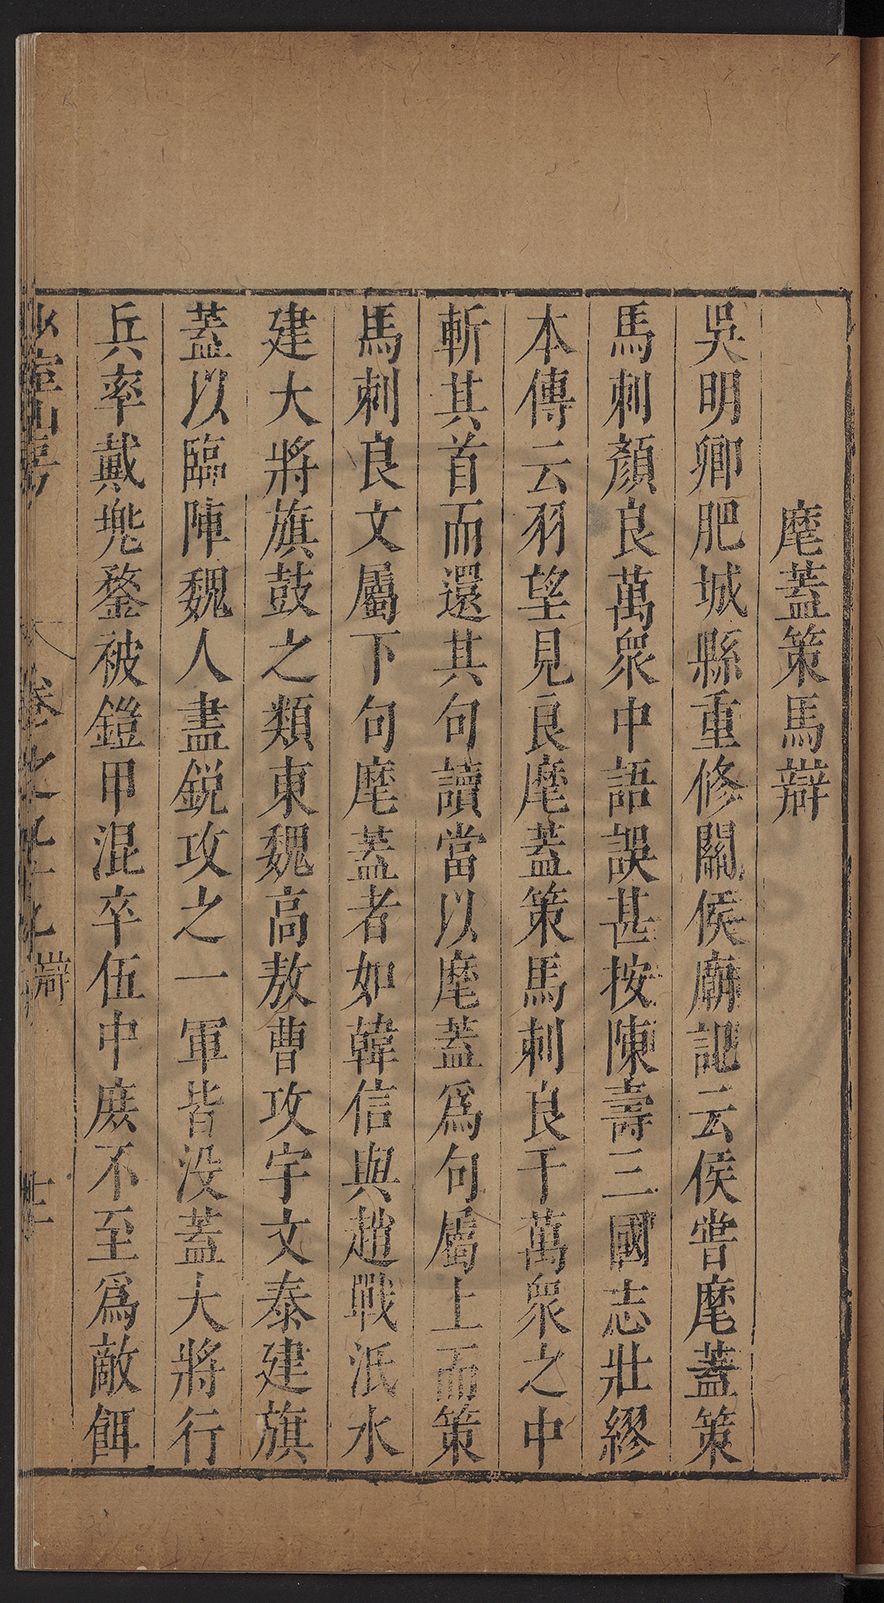 麾蓋策馬辯
吳明卿肥城縣重修關侯廟記云侯甞麾蓋策
馬刺顏良萬衆中語誤甚按陳壽三國志壯繆
本傳云羽望見良麾蓋策馬刺良千萬衆之中
斬其首而還其句讀當以麾蓋爲句屬上而策
馬刺良文屬下句麾蓋者如韓信與趙戰泜水
建大將旗鼓之類東魏高敖曹攻宇文泰建旗
蓋以臨陣魏人盡鋭攻之一軍皆没蓋大將行
兵率戴兠鍪被鎧甲混卒伍中庻不至爲敵餌
山房
卷之
辯